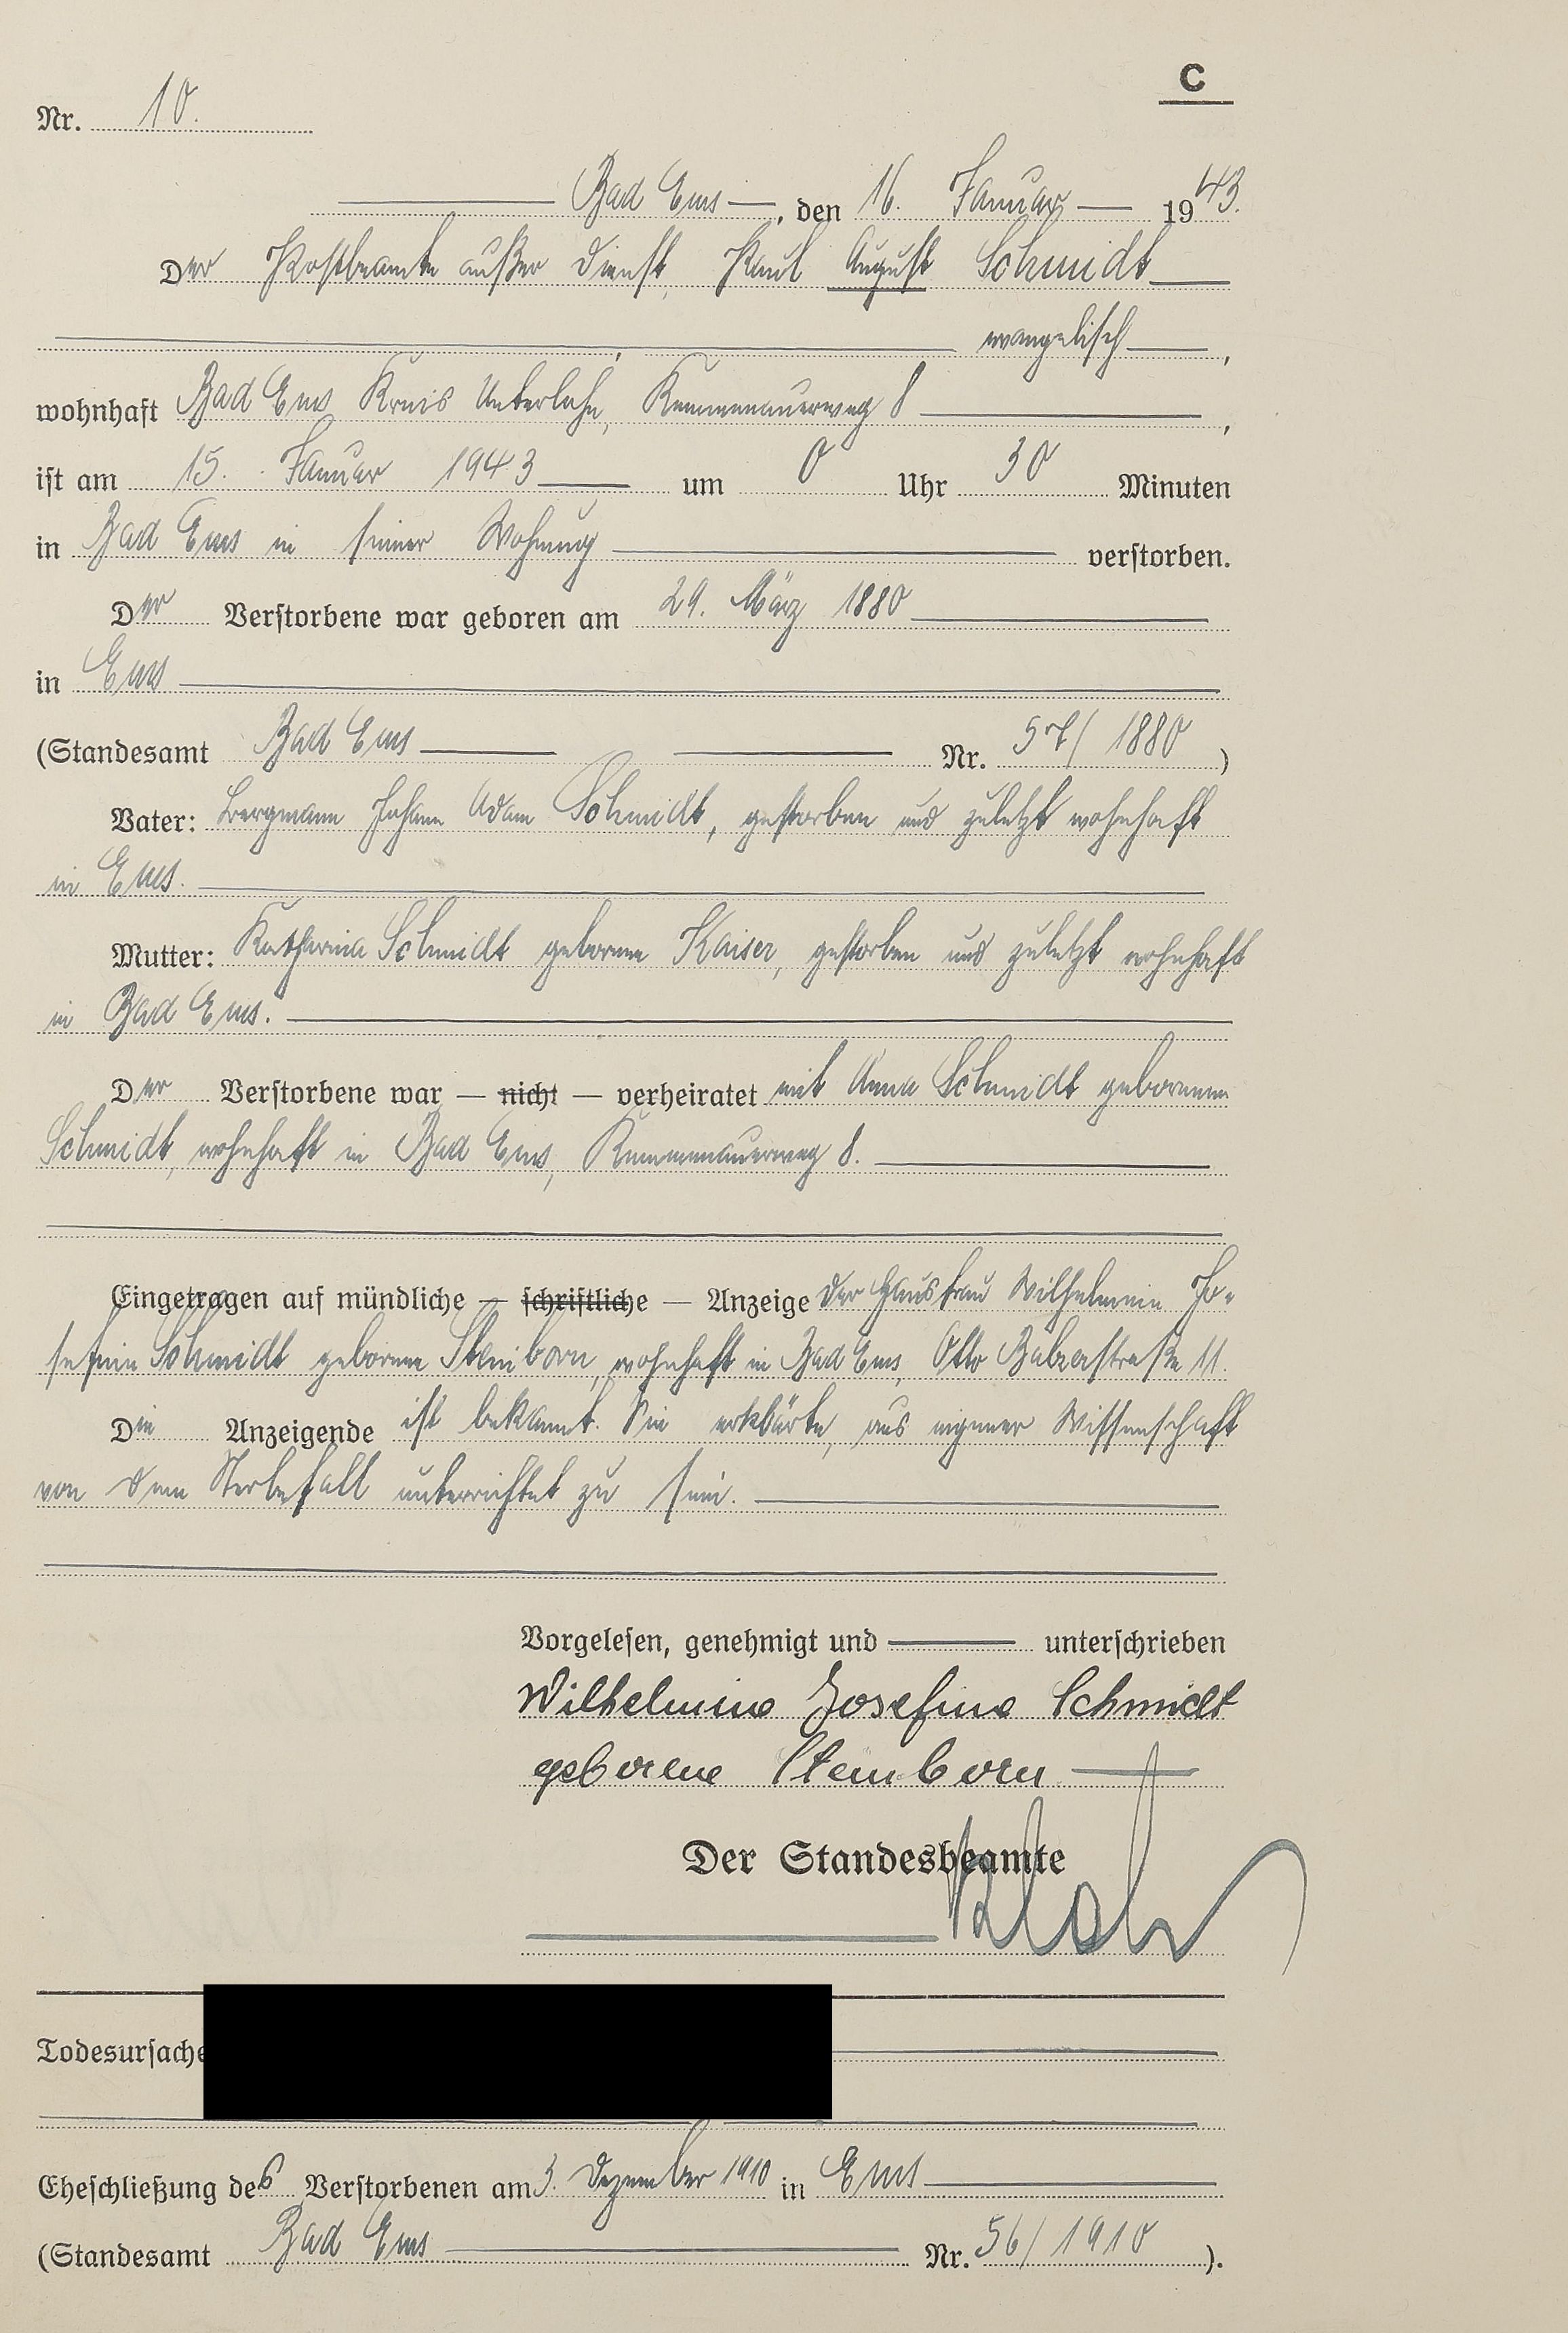 C
Nr. 10.
Bad Ems, den 16. Januar 1943.
Der Postbeamte außer Dienst, Paul August Schmidt
evangelisch,
wohnhaft Bad Ems Kreis Unterlahn, Kemmenauerweg 8,
ist am 15. Januar 1943 um 0 Uhr 30 Minuten
in Bad Ems in seiner Wohnung verstorben.
Der Verstorbene war geboren am 29. März 1880
in Ems
(Standesamt Bad Ems Nr. 57/1880)
Vater: Bergmann Johann Adam Schmidt, gestorben und zuletzt wohnhaft
in Ems.
Mutter: Katharina Schmidt geborene Kaiser, gestorben und zuletzt wohnhaft
in Bad Ems.
Der Verstorbene war — nicht — verheiratet mit Anna Schmidt geborenen
Schmidt, wohnhaft in Bad Ems, Kemmenauerweg 8.
Eingetragen auf mündliche — schriftliche — Anzeige der Hausfrau Wilhelmine Jo-
sefine Schmidt geborene Steinborn, wohnhaft in Bad Ems, Otto Balzerstraße 11.
Die Anzeigende ist bekannt. Sie erklärte, aus eigener Wissenschaft
von dem Sterbefall unterrichtet zu sein.
Vorgelesen, genehmigt und unterschrieben
Wilhelmine Josefine Schmidt
geborene Steinborn
Der Standesbeamte
Todesursache
Eheschließung des Verstorbenen am 3. Dezember 1910 in Ems
(Standesamt Bad Ems Nr. 56/1910).